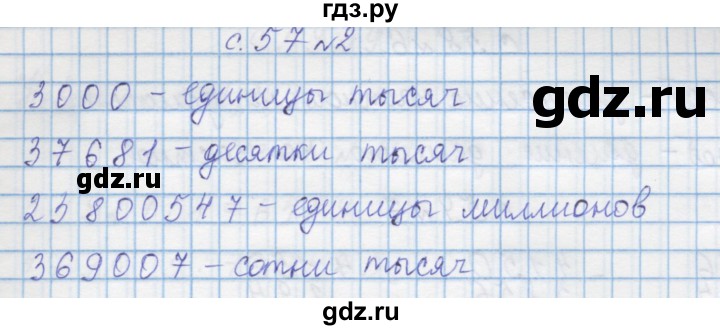 гдз.ру
с. 57 №2
3000 – единицы тысяч
gdz.ru
37681 – десятки тысяч
gdz.ru
23800547 – единицы миллионов
369007 – сотни тысяч
gdz.ru